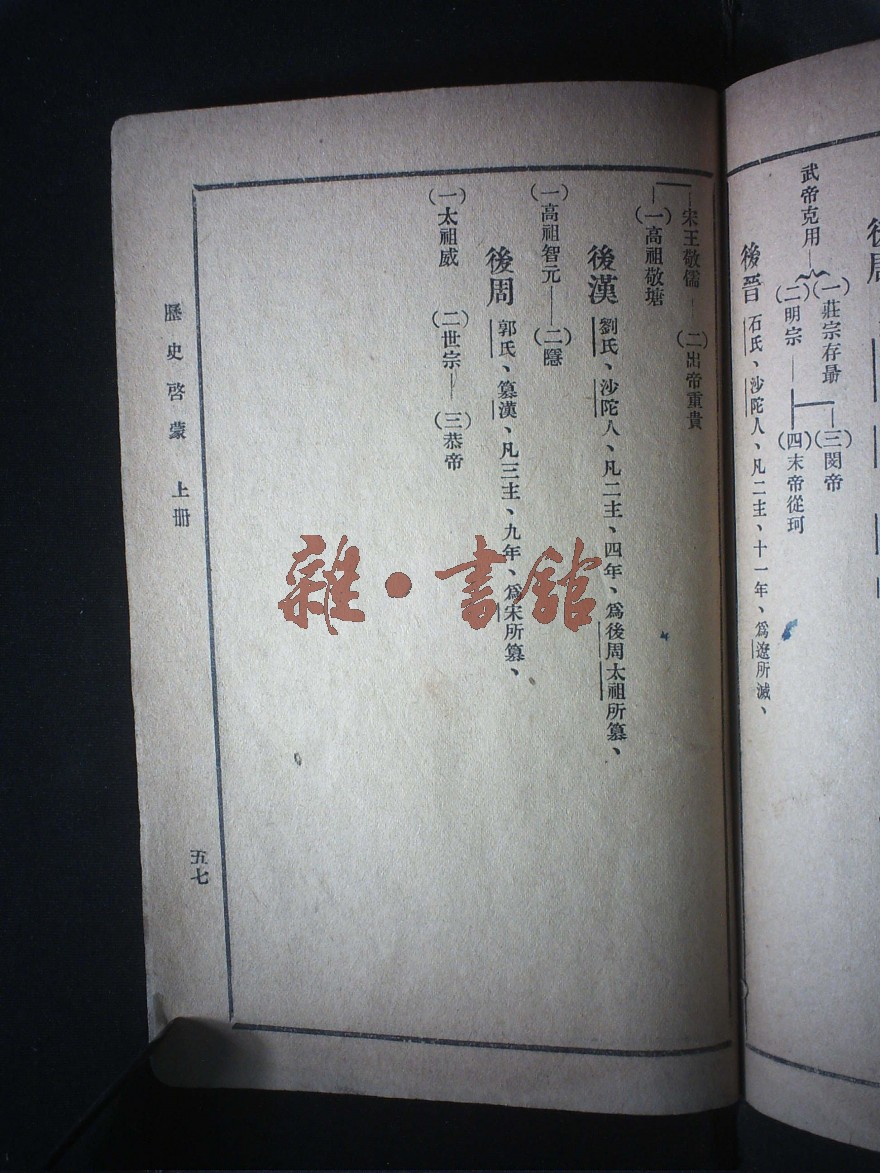 後周
武帝克用
(一)莊宗存勗
(三)閔帝
(二)明宗
(四)末帝從珂
後晉 石氏、沙陀人、凡二主、十一年、爲遼所滅、
宋王敬儒 (二)出帝重貴
(一)高祖敬塘
後漢 劉氏、沙陀人、凡二主、四年、爲後周太祖所篡、
(一)高祖智元 (二)隱
後周 郭氏、篡漢、凡三主、九年、爲宋所篡、
(一)太祖威 (二)世宗 (三)恭帝
歷史啓蒙 上册
五七
雜·書館